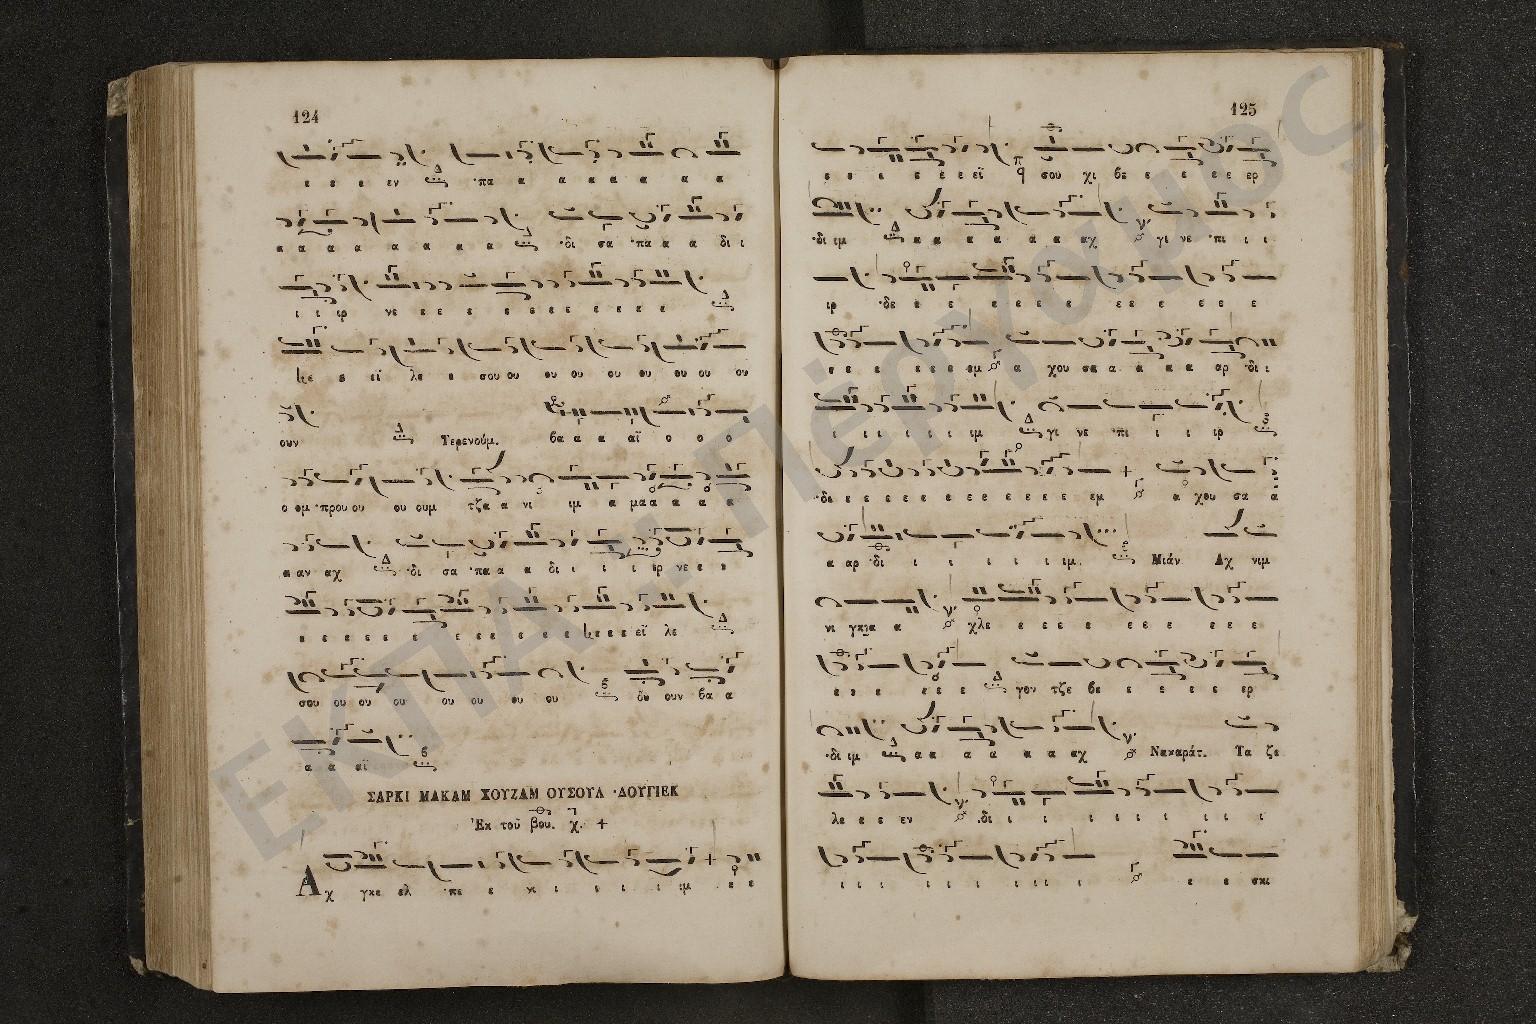 124
ε ε ε εν ·πα α α α α α α α
α α α α α α α α ·δι σα ·πα α α δι ι
ι ι ιρ νε ε ε ε ε ε ε ε ε ε ε ε
ε εϊ λε ε σου ου ου ου ου ου ου ου
ουν Τερενούμ. βα α α αϊ ο ο ο
ο ομ ·πρου ου ου ουμ τζα α νι ιμ α μα α α α α
α αν αχ ·δι σα ·πα α α δι ι ι ι ιρ νε ε ε
ε ε ε ε ε ε ε ε ε ε ε ε ε ε ε εϊ λε
σου ου ου ου ου ου ου ου ου ουν βα α
α α αϊ
ΣΑΡΚΙ ΜΑΚΑΜ ΧΟΥΖΑΜ ΟΥΣΟΥΛ ·ΔΟΥΓΙΕΚ
Ἐκ τοῦ βου. χ. +
Αχ γκε ελ ·πε ε κι ι ι ι ι ιμ ε ε
125
ε ε ε ε ε ε εϊ σου χι βε ε ε ε ε ερ
·δι ιμ α α α α α α αχ γι νε ·πι ι ι
ιρ ·δε ε ε ε ε ε ε ε ε ε ε ε ε
ε ε ε ε ε ε εμ α χου σα α α α α αρ ·δι ι
ι ι ι ι ι ι ιμ γι νε ·πι ι ι ιρ
·δε ε ε ε ε ε ε ε ε ε ε ε εμ α χου σα α
α αρ ·δι ι ι ι ι ι ιμ. Μιάν Αχ νιμ
νι γκια α χλε ε ε ε ε ε ε ε ε ε ε
ε ε ε ε ε ε γον τζε βε ε ε ε ε ερ
·δι ιμ α α α α α α αχ Νακαράτ. Τα ζε
λε ε ε εν ·δι ι ι ι ι ι ι ι ι
ι ι ι ι ι ι ι ι ι ι ι ε ε σκι